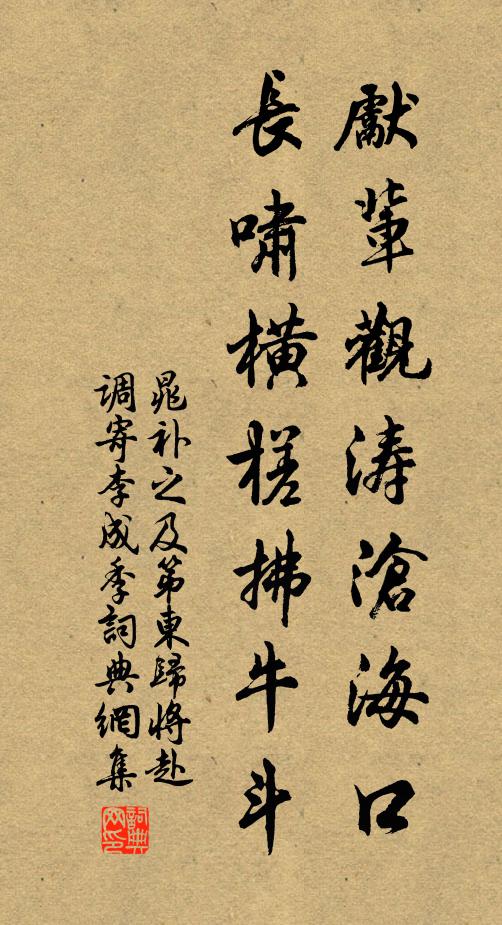 獻軰觀涛滄海口
長嘯橫槎拂牛斗
晁补之及第東歸將赴
调寄李成季詞典網集
詞典网印